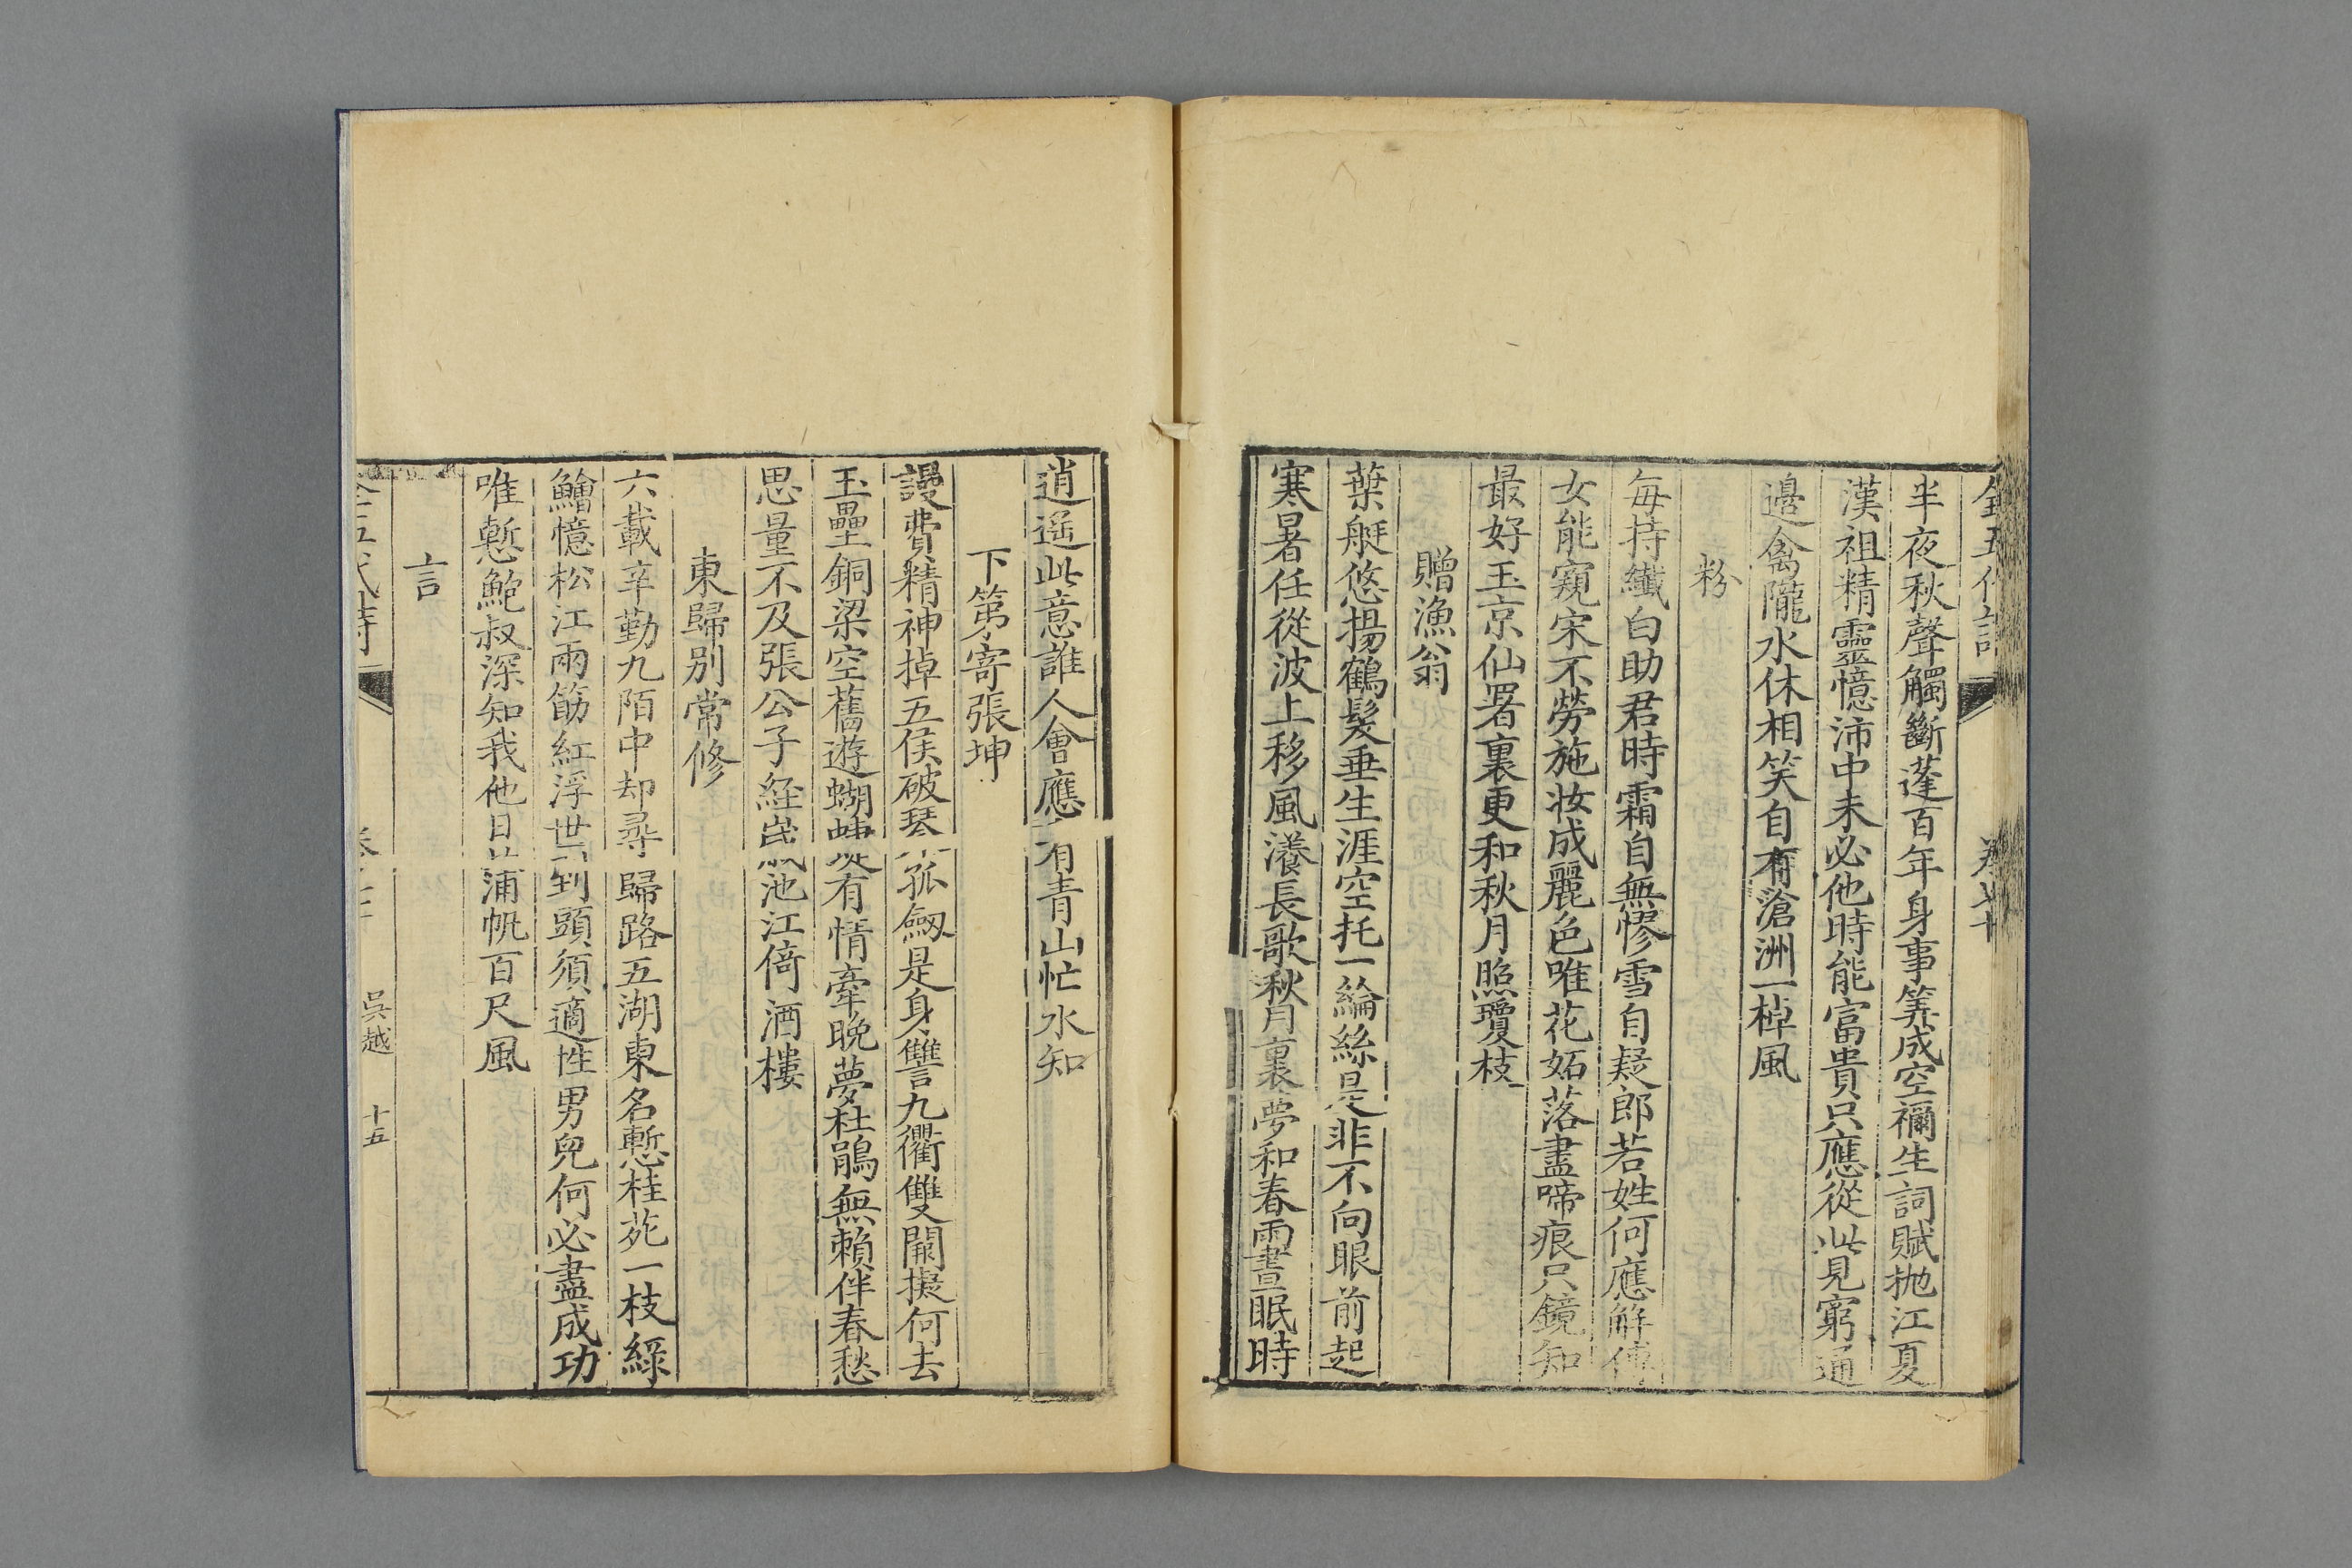 全五代詩
半夜秋聲觸斷蓬百年身事筭成空禰生詞賦抛江夏
漢祖精靈憶沛中未必他時能富貴只應從此見窮通
邊禽隴水休相笑自有滄洲一棹風
粉
每持纖白助君時霜自無慘雪自疑郎若姓何應解傅
女能窺宋不勞施妝成麗色唯花妬落盡啼痕只鏡知
最好玉京仙署裏更和秋月照瓊枝
贈漁翁
葉艇悠揚鶴髮垂生涯空托一綸絲是非不向眼前起
寒暑任從波上移風瀁長歌秋月裏夢和春雨晝眠時
逍遥此意誰人會應有青山忙水知
下第寄張坤
謾費精神掉五侯破琴孤劔是身讐九衢雙闕擬何去
玉壘銅梁空舊遊蝴蝶有情牽晚夢杜鵑無賴伴春愁
思量不及張公子經歲池江倚酒樓
東歸別常修
六載辛勤九陌中却尋歸路五湖東名慙桂苑一枝綠
鱠憶松江兩筯紅浮世到頭須適性男兒何必盡成功
唯慙鮑叔深知我他日蒲帆百尺風
言
全五代詩
吳越
十五